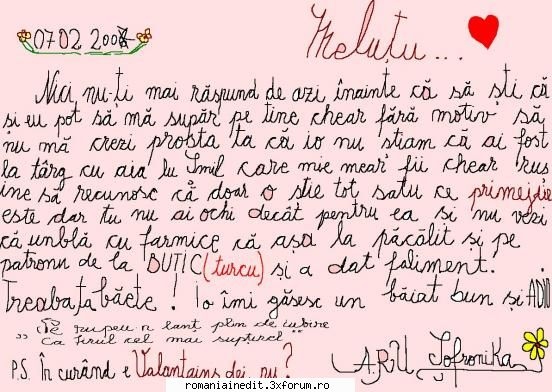 07.02.2007
Meluțu...
Nici nu-ți mai răspund de azi înainte că să ști că
și eu pot să mă supăr pe tine chear fără motiv să
nu mă crezi prosta ta că io nu știam că ai fost
la târg cu aia lu Imil care mie mear fii chear rus
ine să recunosc că doar o știe tot satu ce primejdie
este dar tu nu ai ochi decât pentru ea si nu vezi
că umblă cu farmice că așa la păcălit și pe
patronu de la BUTIC (turcu) și a dat faliment.
Treaba ta băete! Io îmi găsesc un băiat bun și ADIO
rupeu n lanț plin de iubire
Ca firul cel mai supțirel"
P.S. În curând e Valantains dei, nu?
A.R.U Sofronika
romaniainedit.3xforum.ro